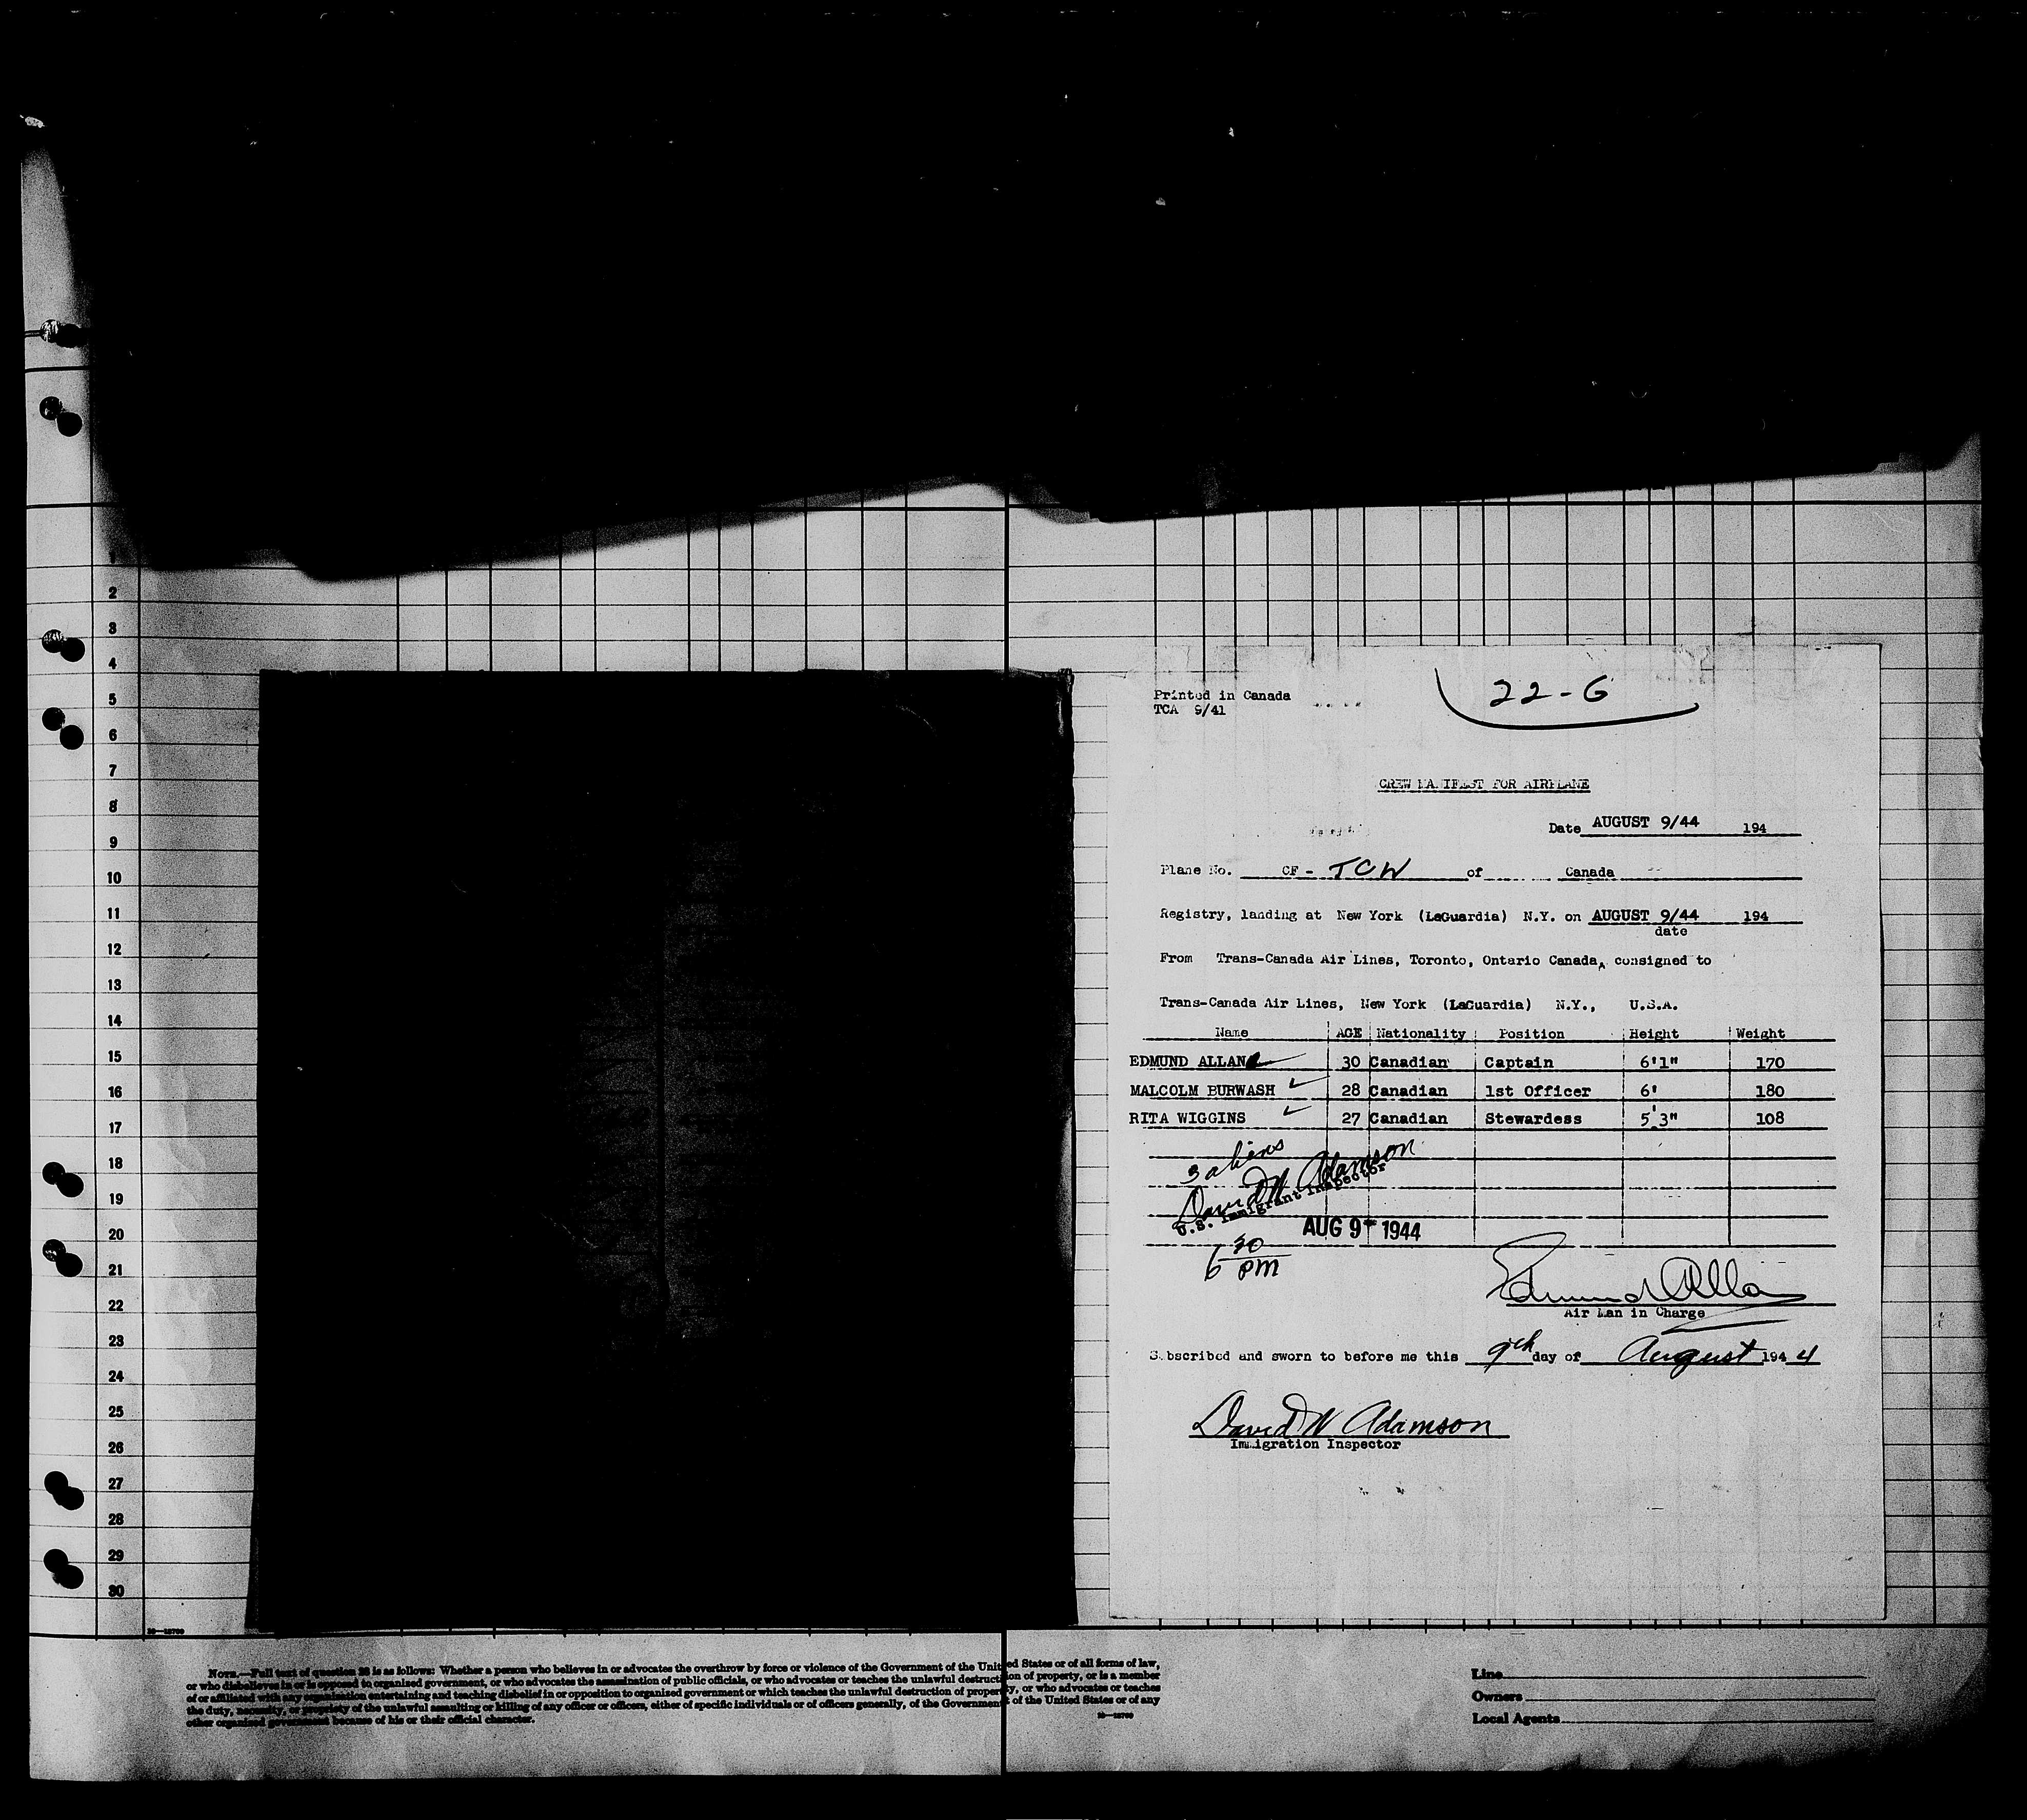 1
2
3
4
5
6
7
8
9
10
11
12
13
14
15
16
17
18
19
20
21
22
23
24
25
26
27
28
29
30
16—18769
Printed in Canada
TCA 9/41
22-G
CREW MANIFEST FOR AIRPLANE
Date AUGUST 9/44 194
Plane No. CF - TCW of Canada
Registry, landing at New York (LaGuardia) N.Y. on AUGUST 9/44 194
date
From Trans-Canada Air Lines, Toronto, Ontario Canada, consigned to
Trans-Canada Air Lines, New York (LaGuardia) N.Y., U.S.A.
Name AGE Nationality Position Height Weight
EDMUND ALLAN 30 Canadian Captain 6'1" 170
MALCOLM BURWASH 28 Canadian 1st Officer 6' 180
RITA WIGGINS 27 Canadian Stewardess 5'3" 108
3 aliens
David W Adamson
U.S. Immigrant Inspector
AUG 9 1944
6 30 PM
Edmund Allan
Air Man in Charge
Subscribed and sworn to before me this 9th day of August 1944
David W Adamson
Immigration Inspector
NOTE.—Full text of question 28 is as follows: Whether a person who believes in or advocates the overthrow by force or violence of the Government of the United States or of all forms of law,
or who disbelieves in or is opposed to organized government, or who advocates the assassination of public officials, or who advocates or teaches the unlawful destruction of property, or is a member
of or affiliated with any organization entertaining and teaching disbelief in or opposition to organized government or which teaches the unlawful destruction of property, or who advocates or teaches
the duty, necessity, or propriety of the unlawful assaulting or killing of any officer or officers, either of specific individuals or of officers generally, of the Government of the United States or of any
other organized government because of his or their official character.
16—18769
Line
Owners
Local Agents